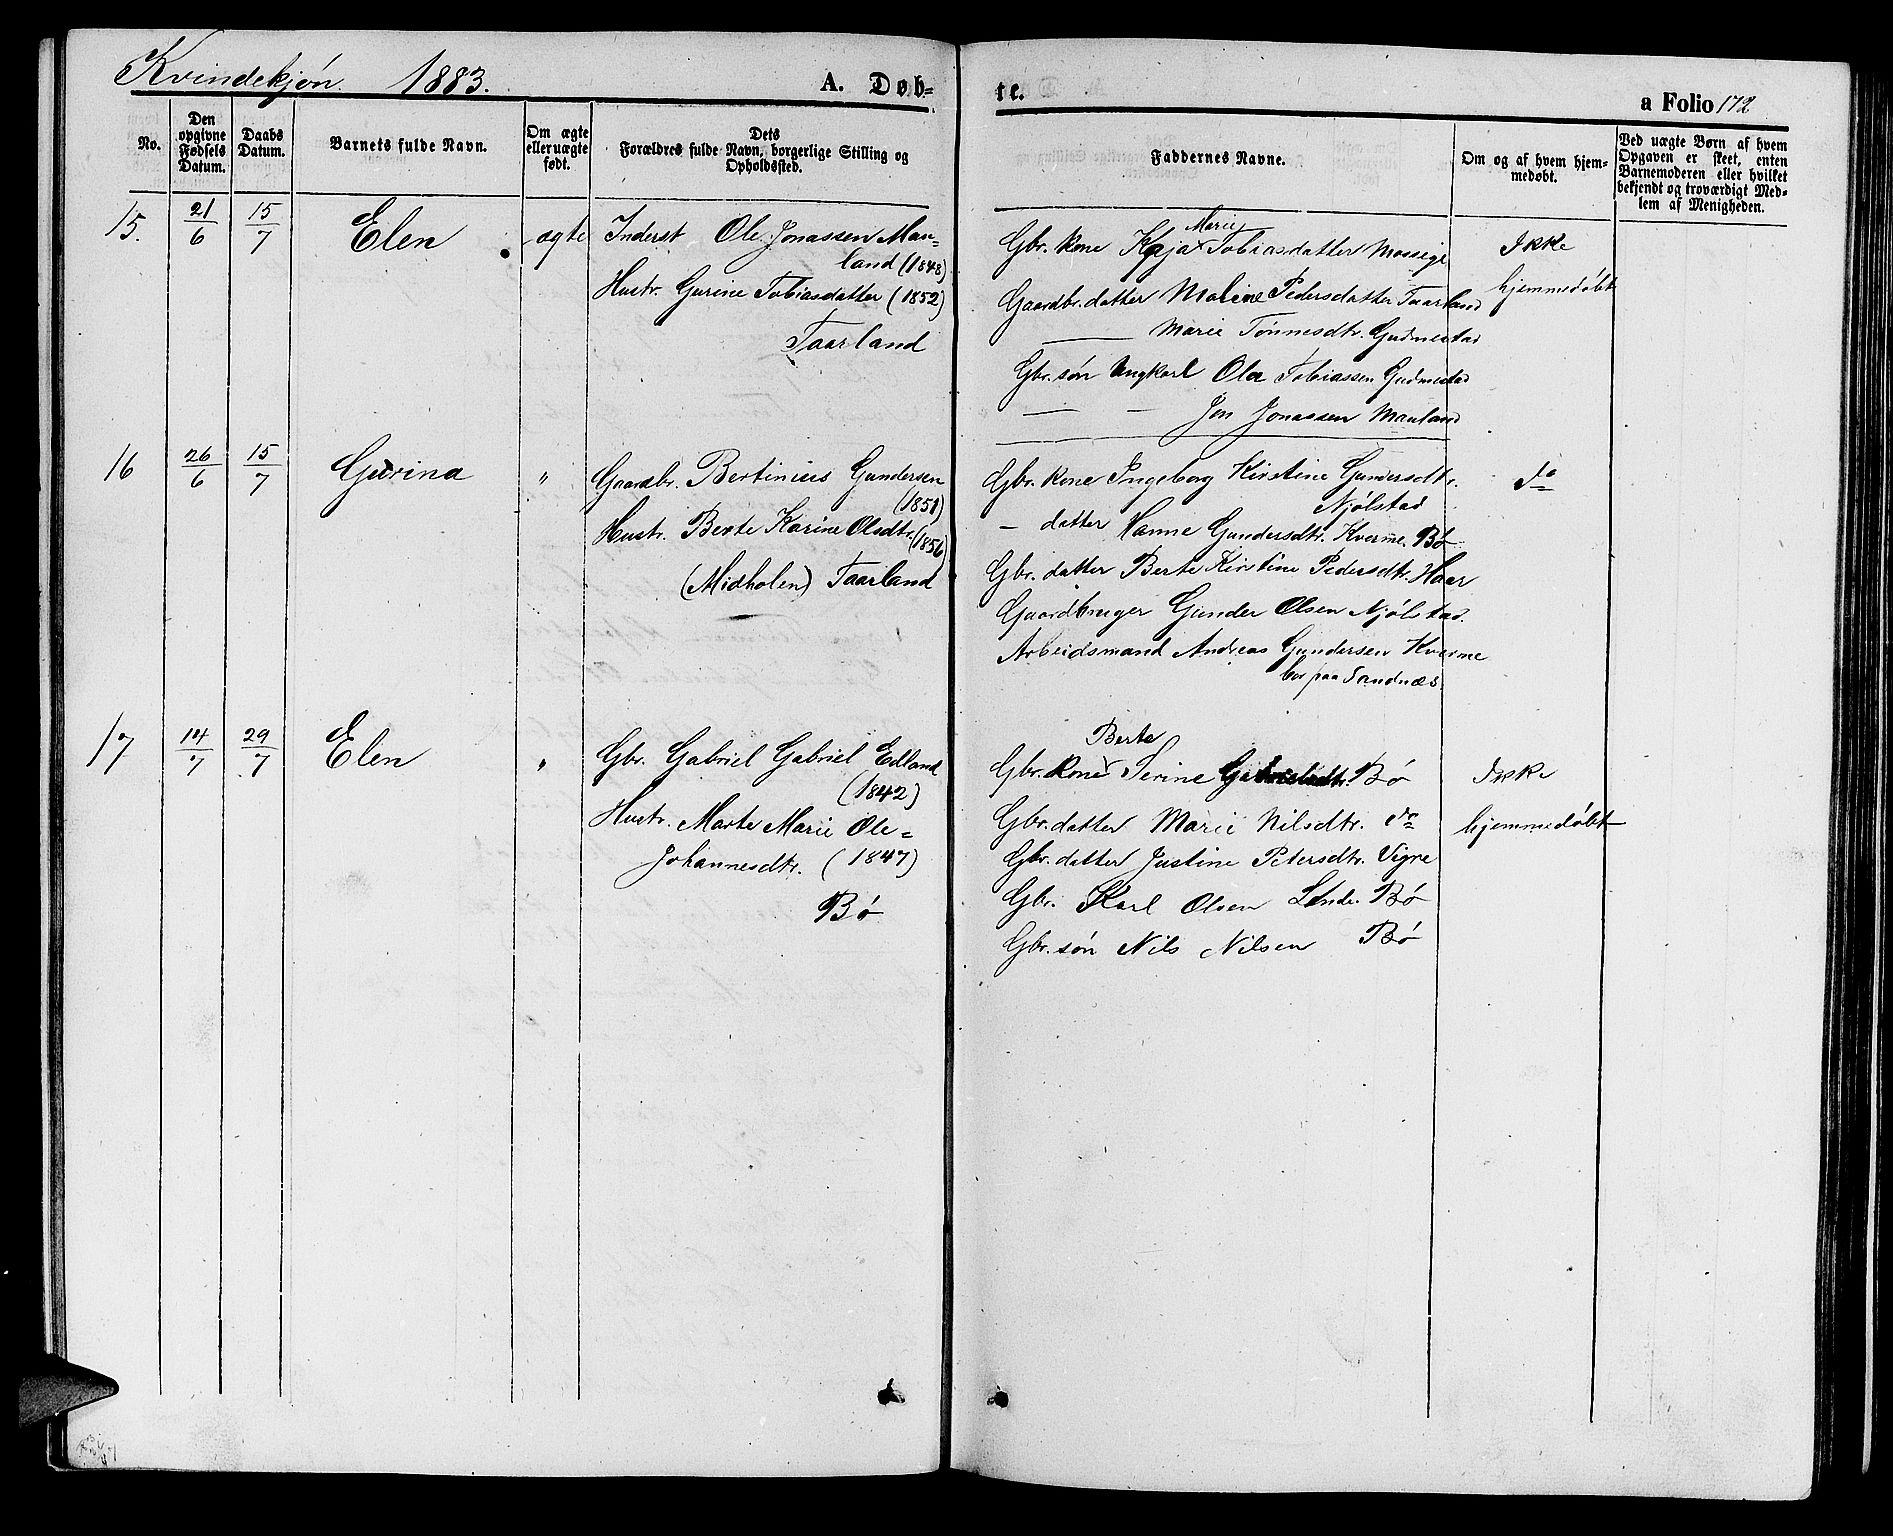 Kvindekjøn. 1883. A. Døb-
te.
a Folio 172
No.
Den opgivne Fødsels Datum.
Daabs Datum.
Barnets fulde Navn.
Om ægte eller uægte født.
Dets
Forældres fulde Navn, borgerlige Stilling og
Opholdssted.
Faddernes Navne.
Om og af hvem hjem-
medøbt.
Ved uægte Børn af hvem
Opgaven er skeet, enten
Barnemoderen eller hvilket
bekjendt og troværdigt Med-
lem af Menigheden.
15. 21/6 15/7 Elen ægte Inderst Ole Jonassen Mau-
land (1848)
Hustr. Gurine Tobiasdatter (1852)
Taarland
Marie
Gbr. kone Kaja Tobiasdatter Mossige
Gaardbr. datter Maline Pedersdatter Taarland
— Marie Tønnesdtr. Gudmestad
Gbr. søn Ungkarl Ole Tobiassen Gudmestad
— — Jon Jonassen Mauland
Ikke
hjemmedøbt
16 26/6 15/7 Gurina " Gaardbr. Bertinius Gundersen
(1851)
Hustr. Berte Karine Olsdtr. (1856)
(Midholen) Taarland
Gbr. kone Ingeborg Kirstine Gundersdtr.
Njølstad
— datter Hanne Gundersdtr. Kverme. Bø
Gbr. datter Berte Kirstine Pedersdtr. Haar
Gaardbruger Gunder Olsen Njølstad.
Arbeidsmand Andreas Gundersen Kverme
bor paa Sandnæs.
do
17 14/7 29/7 Elen " Gbr. Gabriel Gabriel Edland
(1842)
Hustr. Marte Marie Ole-
Johannesdtr. (1847)
Bø
Berte
Gbr. kone Serine Gabrielsdtr. Bø
Gbr. datter Marie Nilsdtr. do
Gbr. datter Justine Petersdtr. Vigre
Gbr. Karl Olsen Lende. Bø
Gbr. søn Nils Nilsen Bø
Ikke
hjemmedøbt